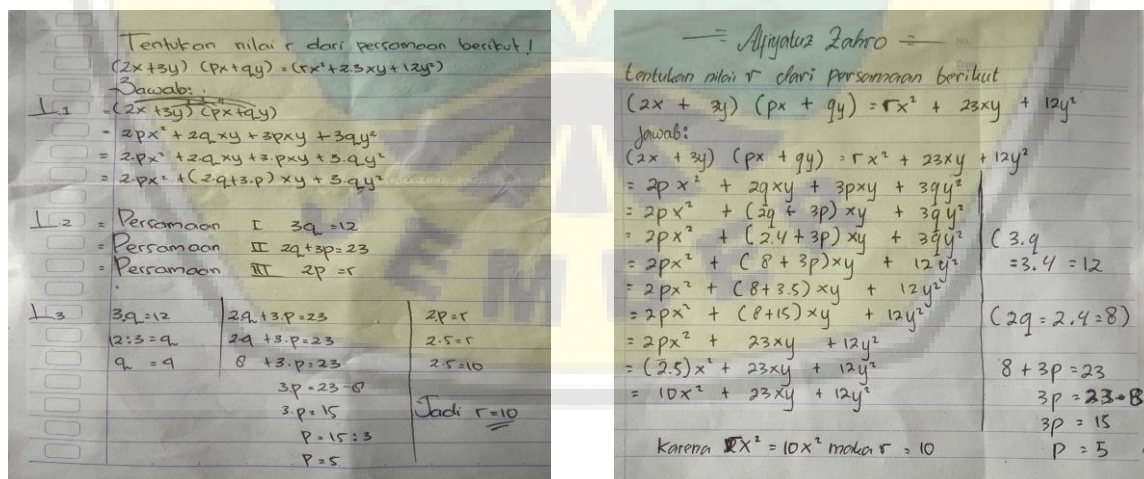 Tentukan nilai r dari persamaan berikut!
(2x+3y) (px+qy) = (rx²+23xy+12y²)
Jawab:
L.1 = (2x+3y) (px+qy)
= 2px² + 2qxy + 3pxy + 3qy²
= 2.px² + 2.qxy + 3.pxy + 3.qy²
= 2.px² + (2.q+3.p) xy + 3.qy²
L2 = Persamaan I 3q = 12
= Persamaan II 2q+3p=23
= Persamaan III 2p = r
L3
3.q=12
12:3=q
q = 4
2q + 3.p = 23
2.4 + 3.p = 23
8 + 3.p = 23
3.p = 23-8
3.p = 15
P = 15 : 3
P = 5
2p = r
2.5 = r
2.5 = 10
Jadi r=10
= Afiyatuz Zahro =
No.
Date
tentukan nilai r dari persamaan berikut
(2x + 3y) (px + qy) = rx² + 23xy + 12y²
Jawab:
(2x + 3y) (px + qy) = rx² + 23xy + 12y²
= 2px² + 2qxy + 3pxy + 3qy²
= 2px² + (2q + 3p) xy + 3qy²
= 2px² + (2.4 + 3p) xy + 3qy²
= 2px² + (8 + 3p) xy + 12y²
= 2px² + (8+3.5) xy + 12y²
= 2px² + (8+15) xy + 12y²
= 2px² + 23xy + 12y²
= (2.5) x² + 23xy + 12y²
= 10x² + 23xy + 12y²
Karena rx² = 10x² maka r = 10
( 3.q
= 3.4 = 12
(2q = 2.4 = 8)
8 + 3p = 23
3p = 23-8
3p = 15
P = 5